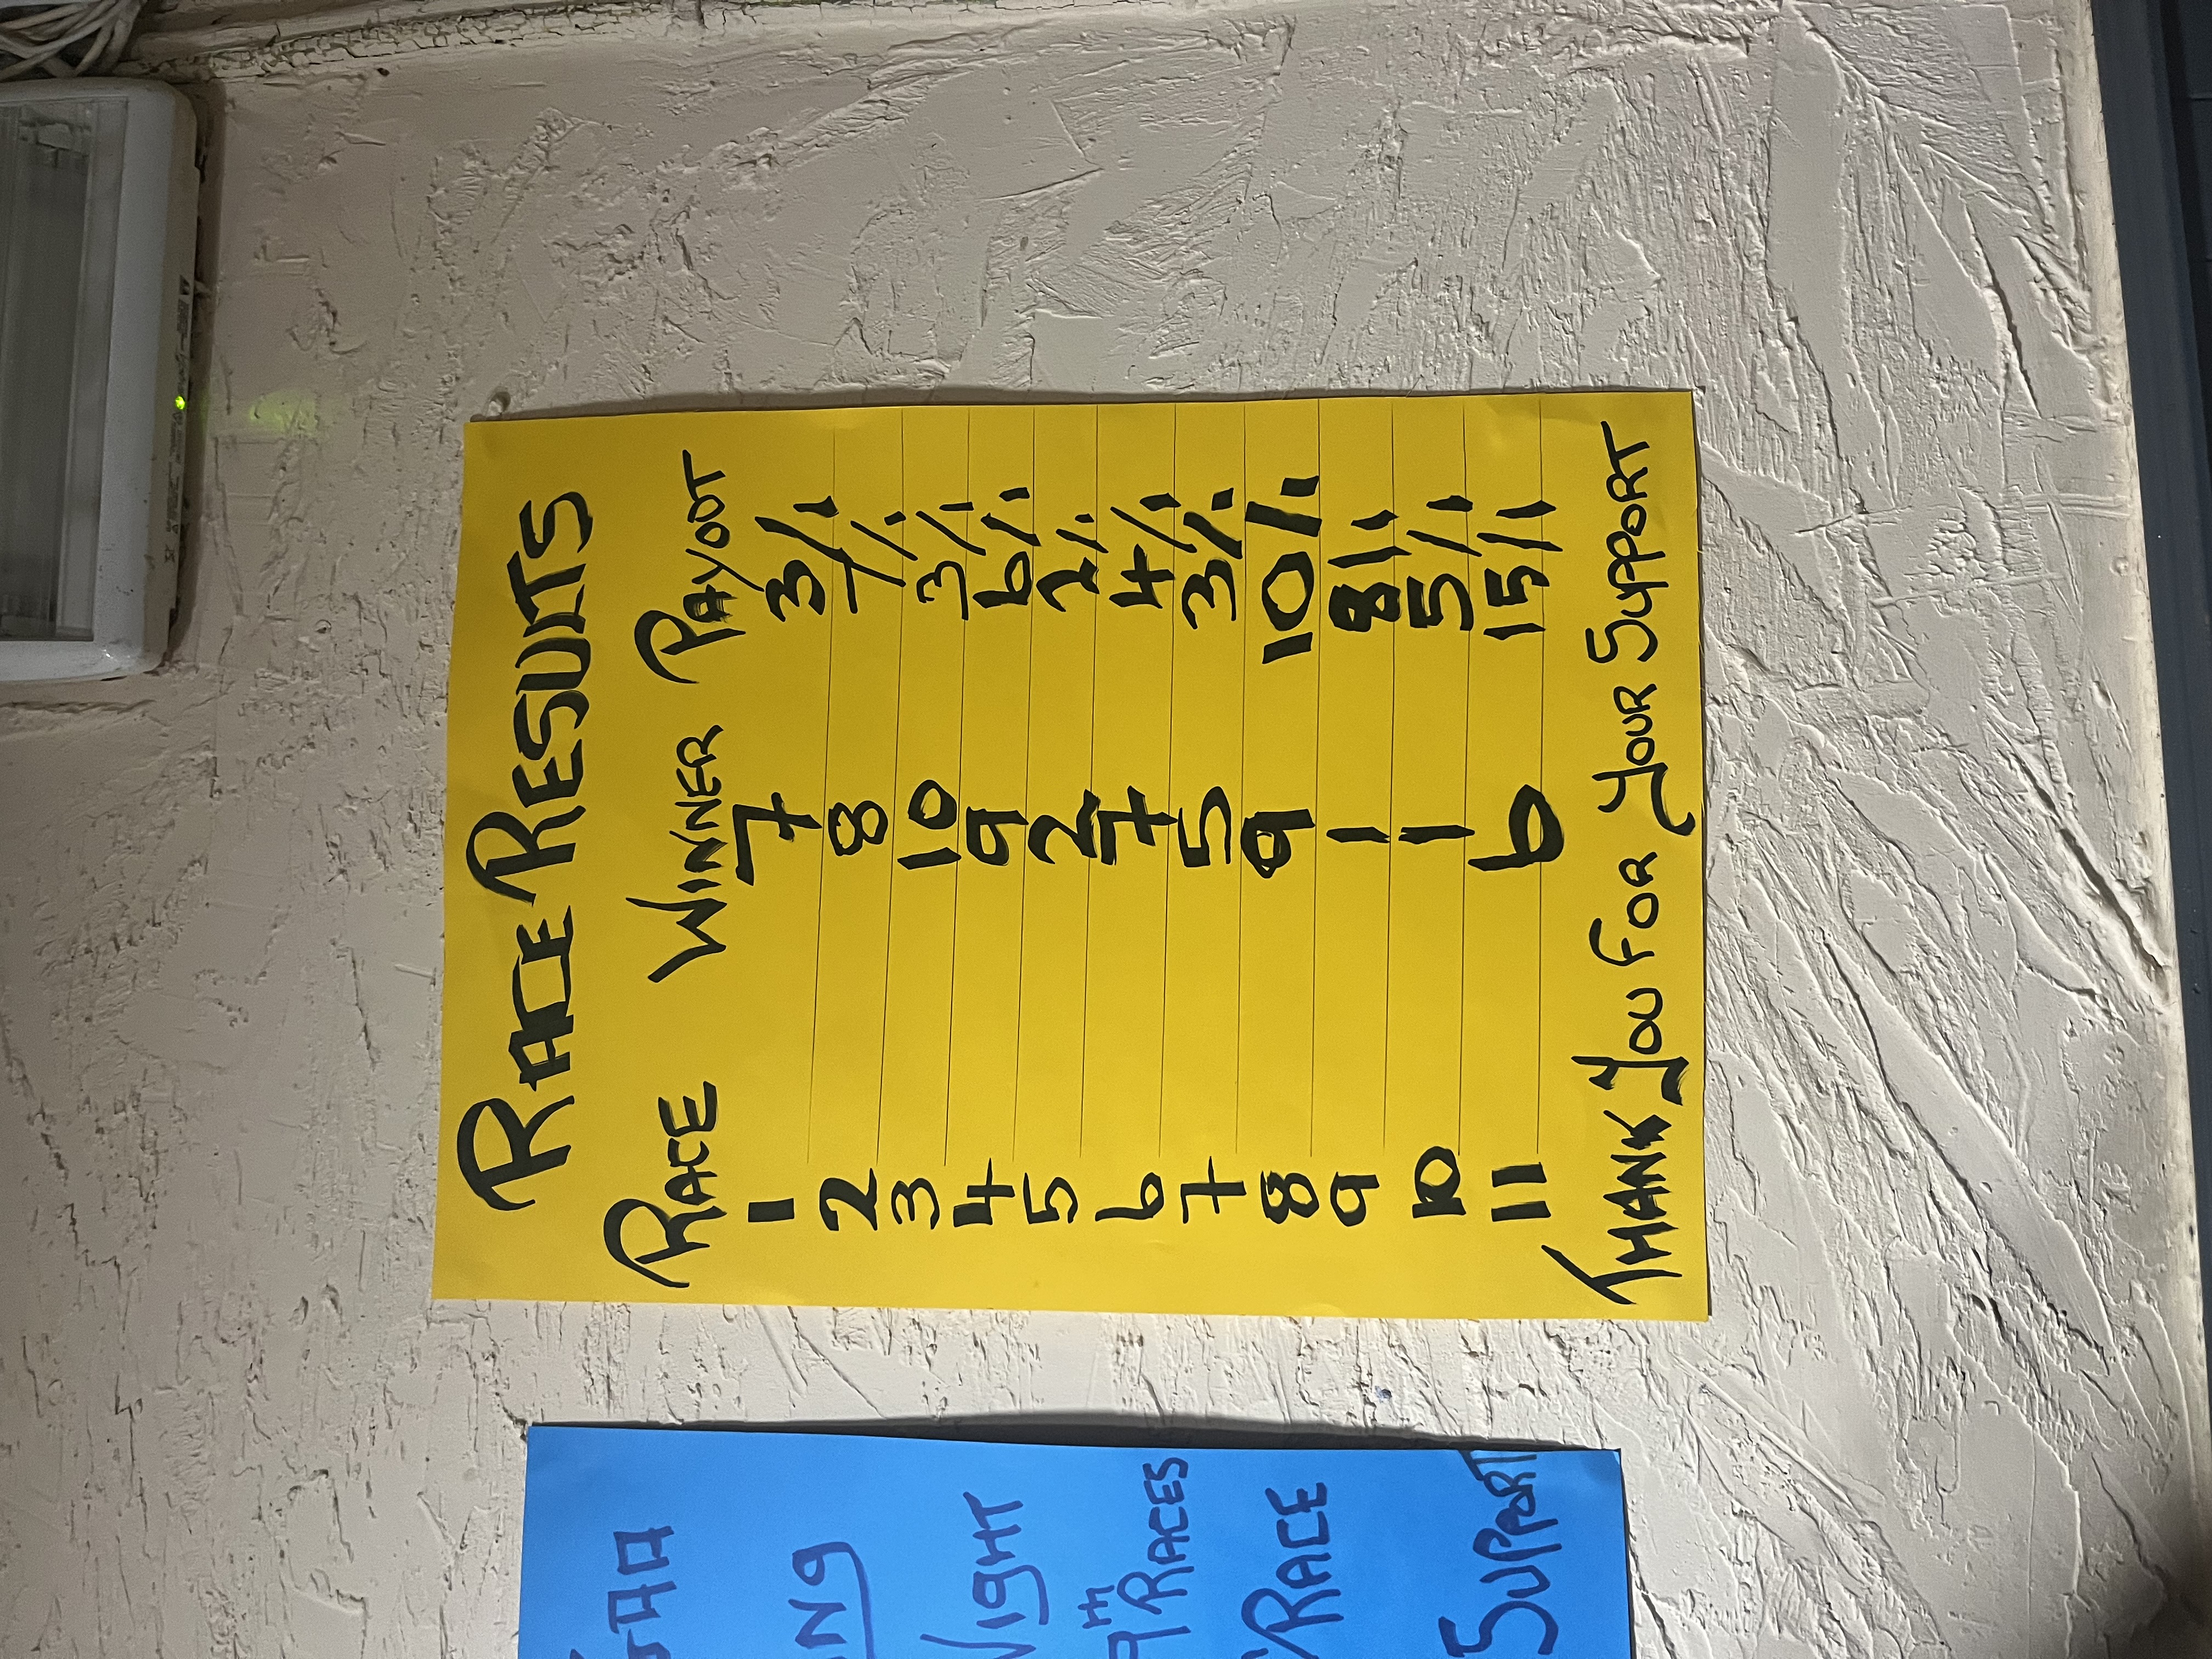 RACE RESULTS
RACE WINNER PAYOUT
1 7 3/1
2 8 7/1
3 10 3/1
4 9 6/1
5 2 2/1
6 7 4/1
7 5 3/1
8 9 10/1
9 1 8/1
10 1 5/1
11 6 15/1
THANK YOU FOR YOUR SUPPORT
NIGHT
9TH RACES
RACE
SUPPORT